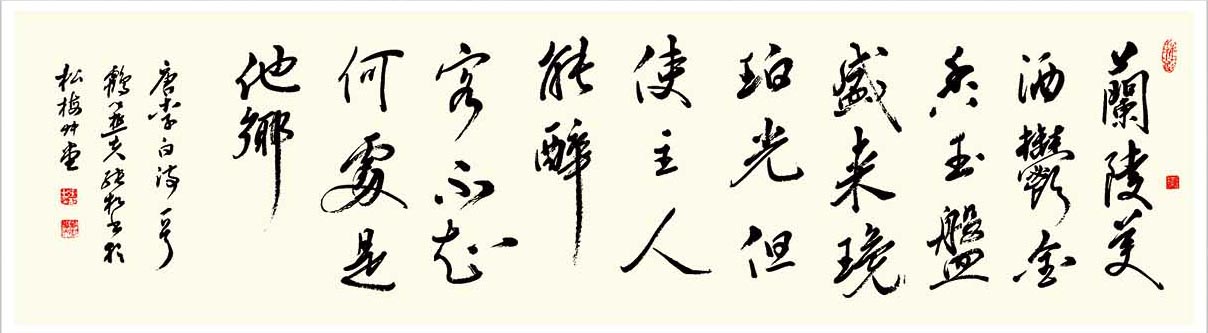 蘭陵美
酒鬱金
香玉盤
盛来琥
珀光但
使主人
能醉
客不知
何處是
他鄉
唐李白詩一首
鶴 書於
松梅艸堂